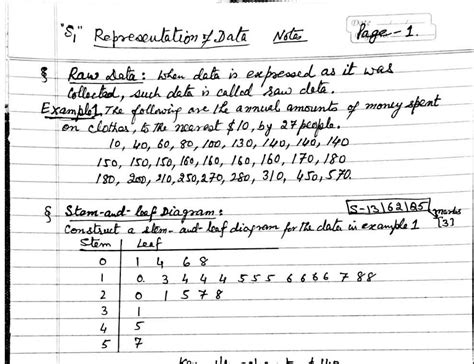 "S1" Representation of Data Notes Page-1.
§ Raw Data: When data is expressed as it was
collected, such data is called raw data.
Example1. The following are the annual amounts of money spent
on clothes, to the nearest $10, by 27 people.
10, 40, 60, 80, 100, 130, 140, 140, 140
150, 150, 150, 160, 160, 160, 160, 170, 180
180, 200, 210, 250, 270, 280, 310, 450, 570.
§ Stem-and-leaf Diagram: S-13/62/Q5 marks
Construct a stem-and-leaf diagram for the data in example 1 [3]
Stem Leaf
0 1 4 6 8
1 0 3 4 4 4 5 5 5 6 6 6 6 7 8 8
2 0 1 5 7 8
3 1
4 5
5 7